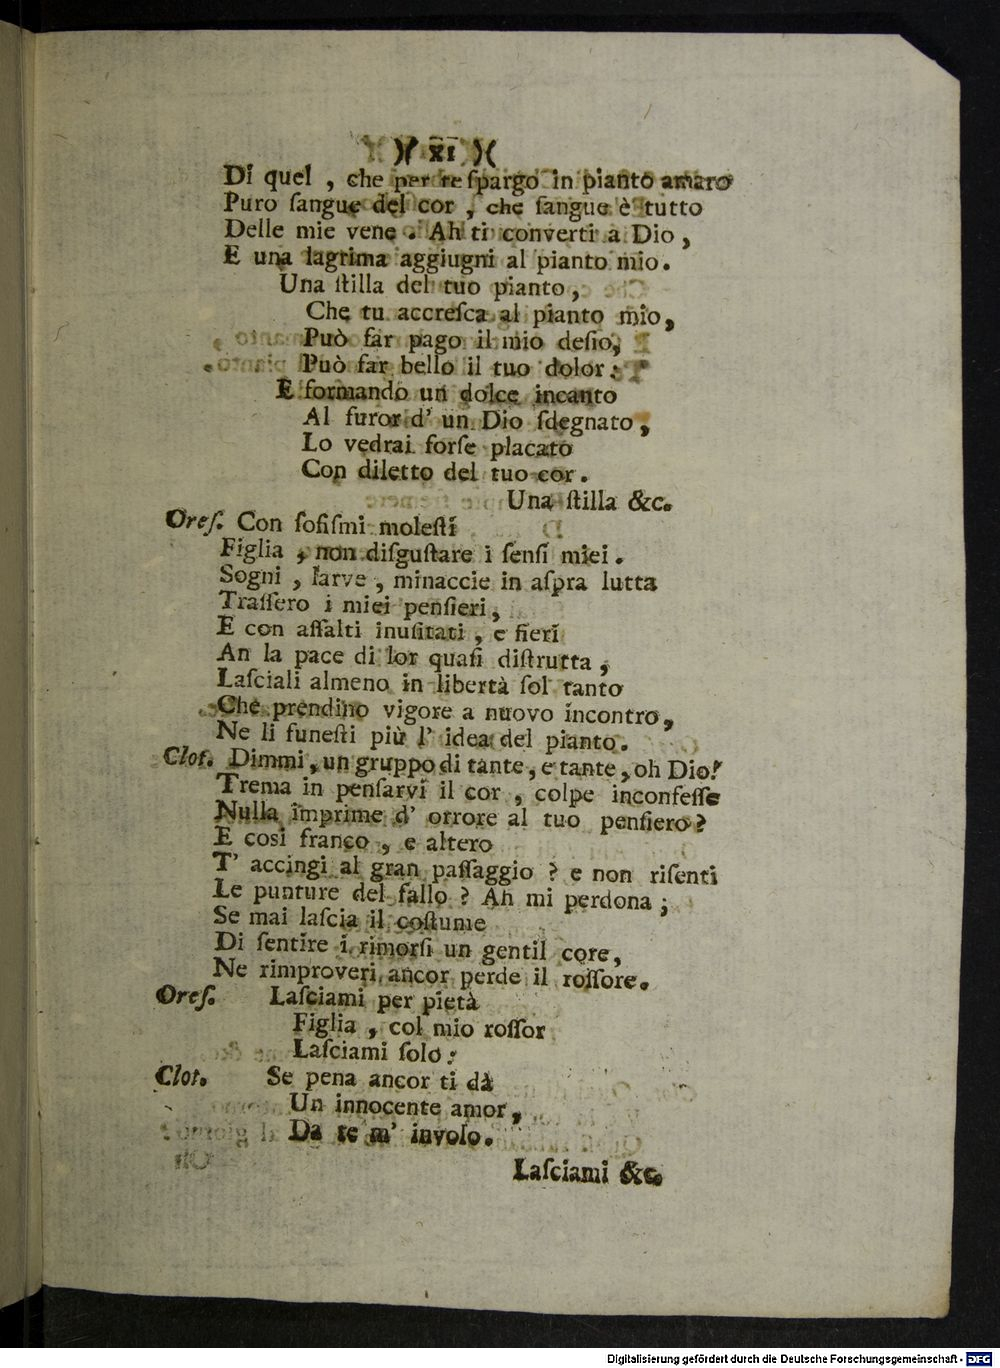 )( XI )(
Di quel , che per te ſpargo in pianto amaro
Puro ſangue del cor , che ſangue è tutto
Delle mie vene . Ah ti converti a Dio ,
E una lagrima aggiugni al pianto mio .
Una ſtilla del tuo pianto ,
Che tu accreſca al pianto mio ,
Può far pago il mio deſio ,
Può far bello il tuo dolor :
E formando un dolce incanto
Al furor d' un Dio ſdegnato ,
Lo vedrai forſe placato
Con diletto del tuo cor .
Una ſtilla &c.
Oreſ. Con ſofiſmi moleſti
Figlia , non diſguſtare i ſenſi miei .
Sogni , larve , minaccie in aſpra lutta
Traſſero i miei penſieri ,
E con aſſalti inuſitati , e fieri
An la pace di lor quaſi diſtrutta ,
Laſciali almeno in libertà ſol tanto
Che prendino vigore a nuovo incontro ,
Ne li funeſti più l' idea del pianto .
Clot. Dimmi , un gruppo di tante , e tante , oh Dio !
Trema in penſarvi il cor , colpe inconfeſſe
Nulla imprime d' orrore al tuo penſiero ?
E così franco , e altero
T' accingi al gran paſſaggio ? e non riſenti
Le punture del fallo ? Ah mi perdona ;
Se mai laſcia il coſtume
Di ſentire i rimorſi un gentil core ,
Ne rimproveri ancor perde il roſſore .
Oreſ. Laſciami per pietà
Figlia , col mio roſſor
Laſciami ſolo :
Clot. Se pena ancor ti dà
Un innocente amor ,
Da te m' involo .
Laſciami &c.
Digitalisierung gefördert durch die Deutsche Forschungsgemeinschaft - DFG